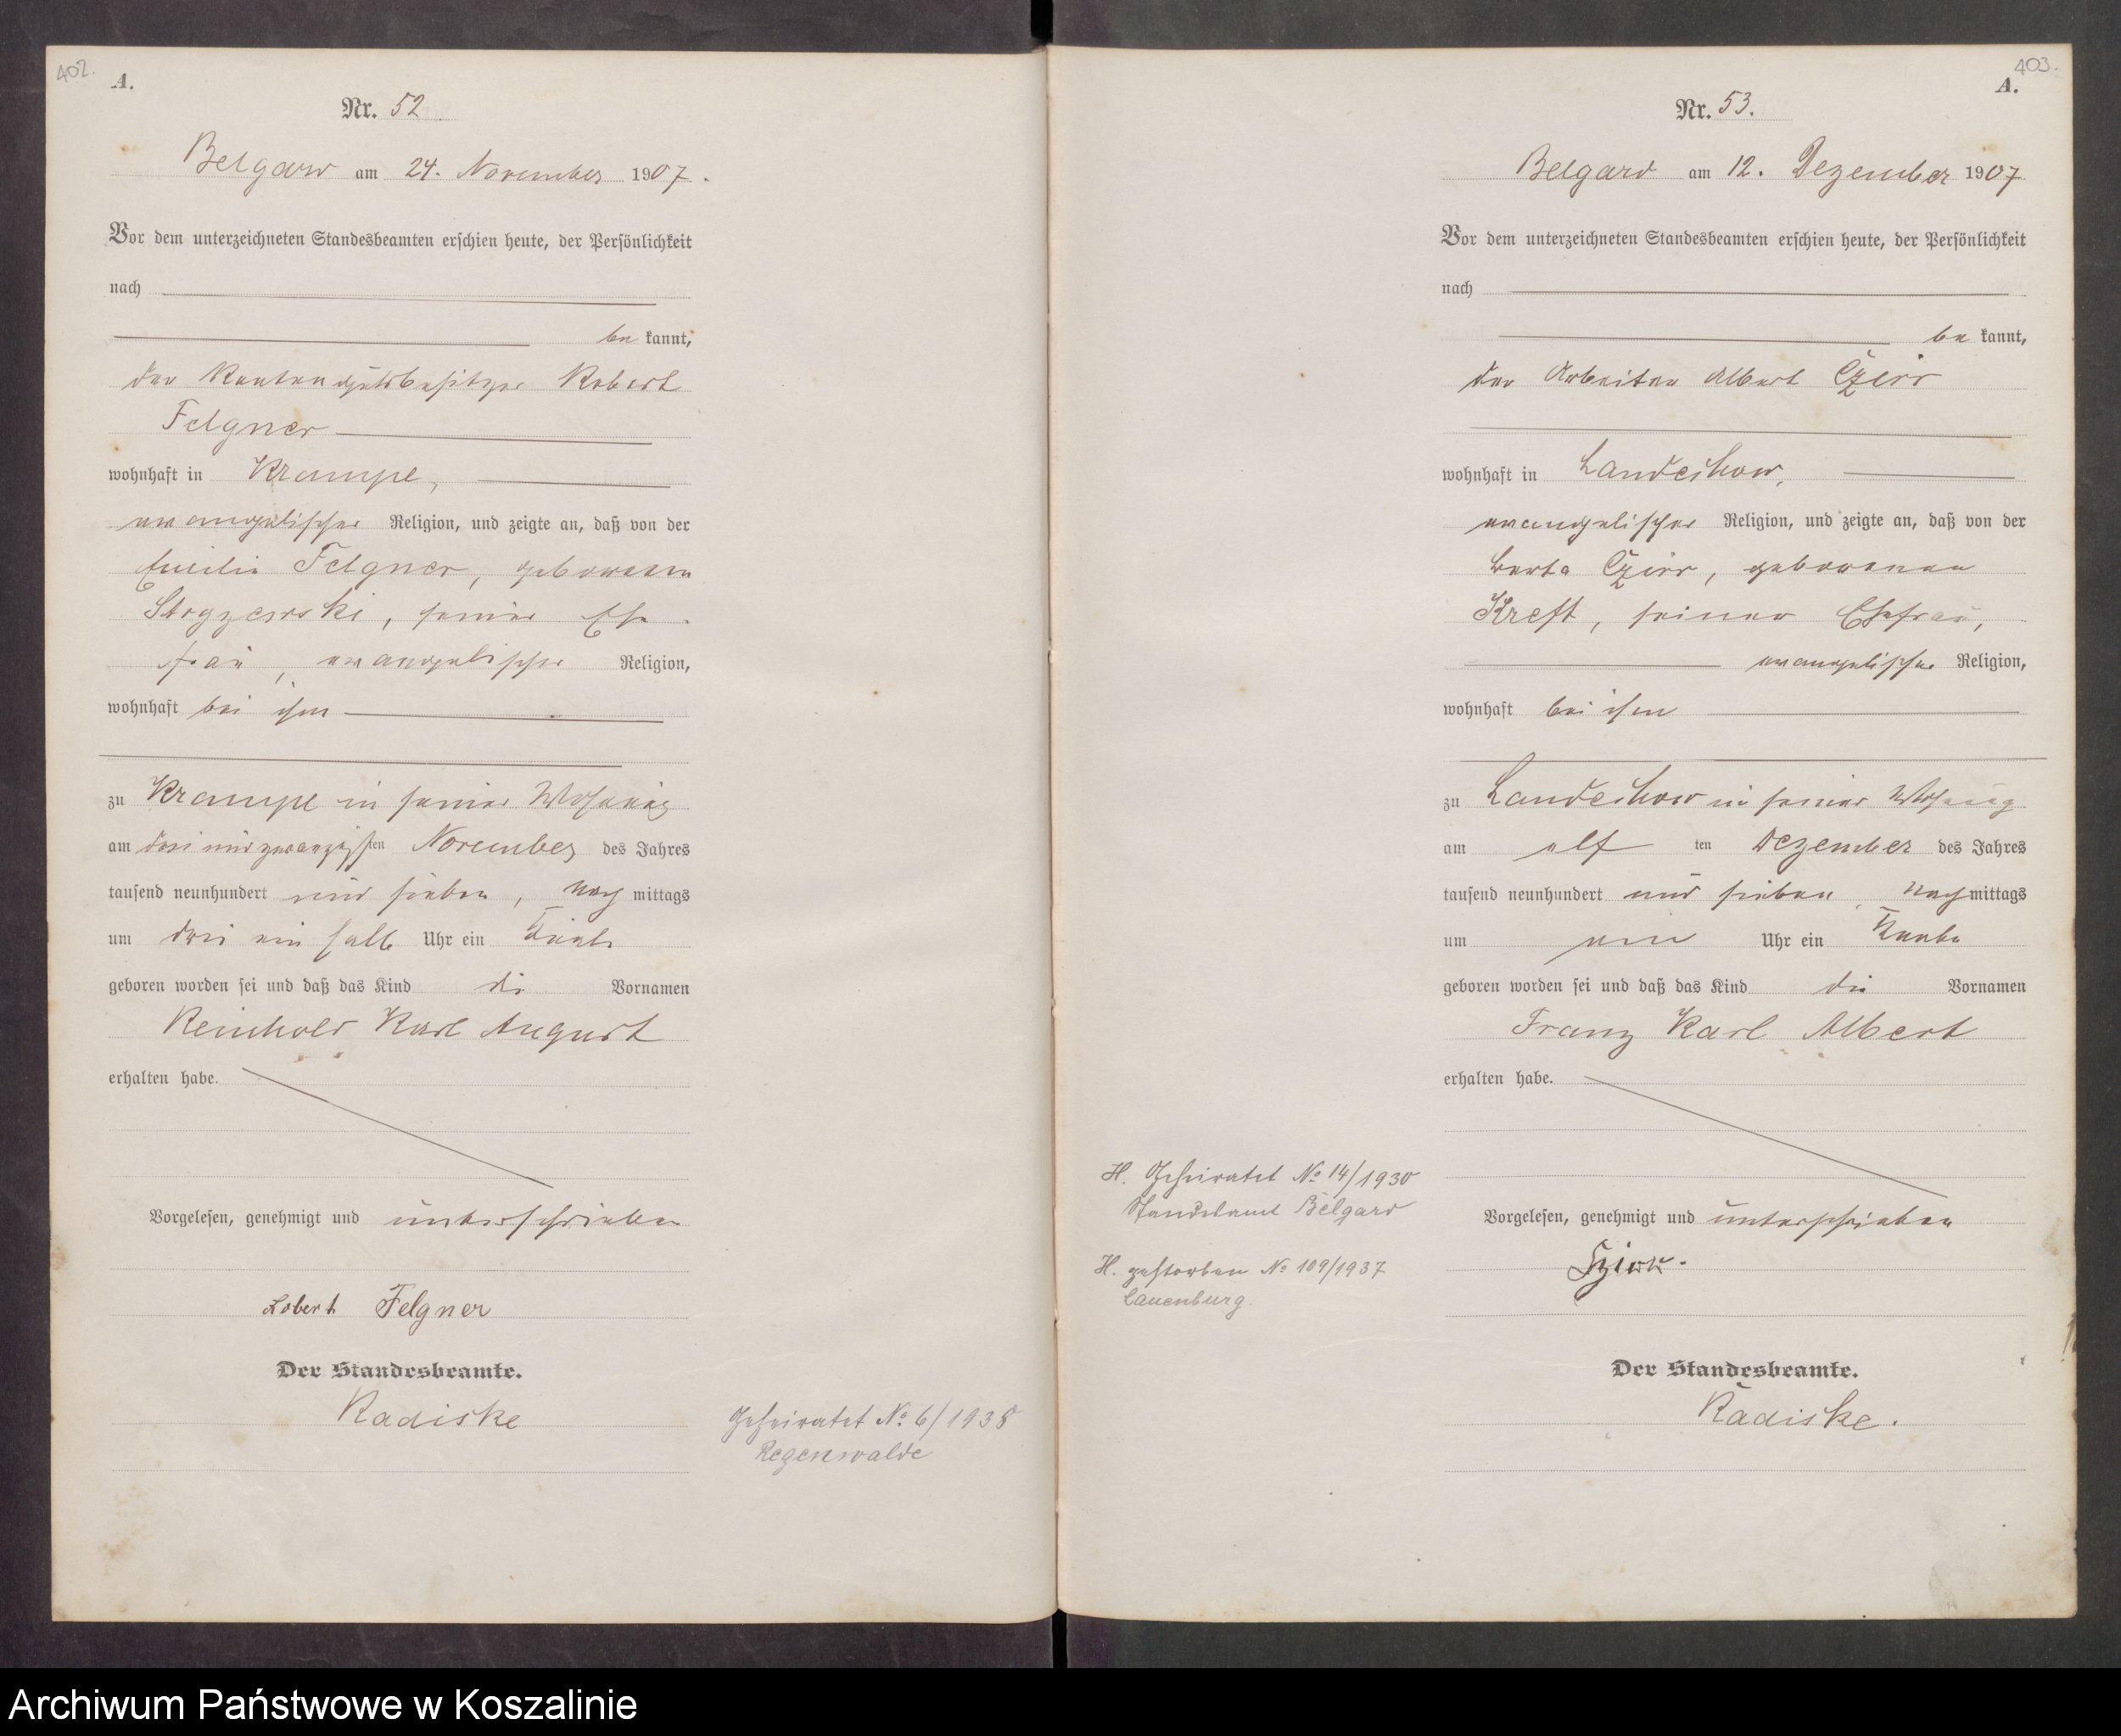 402.
A.
Nr. 52
Belgard am 24. November 1907.
Vor dem unterzeichneten Standesbeamten erschien heute, der Persönlichkeit
nach
be kannt,
der Rentengutsbesitzer Robert
Felgner
wohnhaft in Krampe,
evangelischer Religion, und zeigte an, daß von der
Emilie Felgner, geborenen
seiner Ehe-
frau, evangelischer Religion,
wohnhaft bei ihm
zu Krampe in seiner Wohnung
am drei und zwanzigsten November des Jahres
tausend neunhundert und sieben, nach mittags
um drei ein halb Uhr ein Knabe
geboren worden sei und daß das Kind die Vornamen
Reinhold Karl August
erhalten habe.
Vorgelesen, genehmigt und unterschrieben
Robert Felgner
Der Standesbeamte.
Radiske
Geheiratet No. 6/1938
Regenwalde
403.
A.
Nr. 53.
Belgard am 12. Dezember 1907
Vor dem unterzeichneten Standesbeamten erschien heute, der Persönlichkeit
nach
be kannt,
der Arbeiter Albert Czirr
wohnhaft in Landechow,
evangelischer Religion, und zeigte an, daß von der
Berta Czirr, geborenen
Kreft, seiner Ehefrau,
evangelischer Religion,
wohnhaft bei ihm
zu Landechow in seiner Wohnung
am elf ten Dezember des Jahres
tausend neunhundert und sieben, nach mittags
um ein Uhr ein Knabe
geboren worden sei und daß das Kind die Vornamen
Franz Karl Albert
erhalten habe.
Vorgelesen, genehmigt und unterschrieben
Czirr.
Der Standesbeamte.
Radiske.
H. Geheiratet No 14/1930
Standesamt Belgard
H. gestorben No 109/1937
Lauenburg.
Archiwum Państwowe w Koszalinie